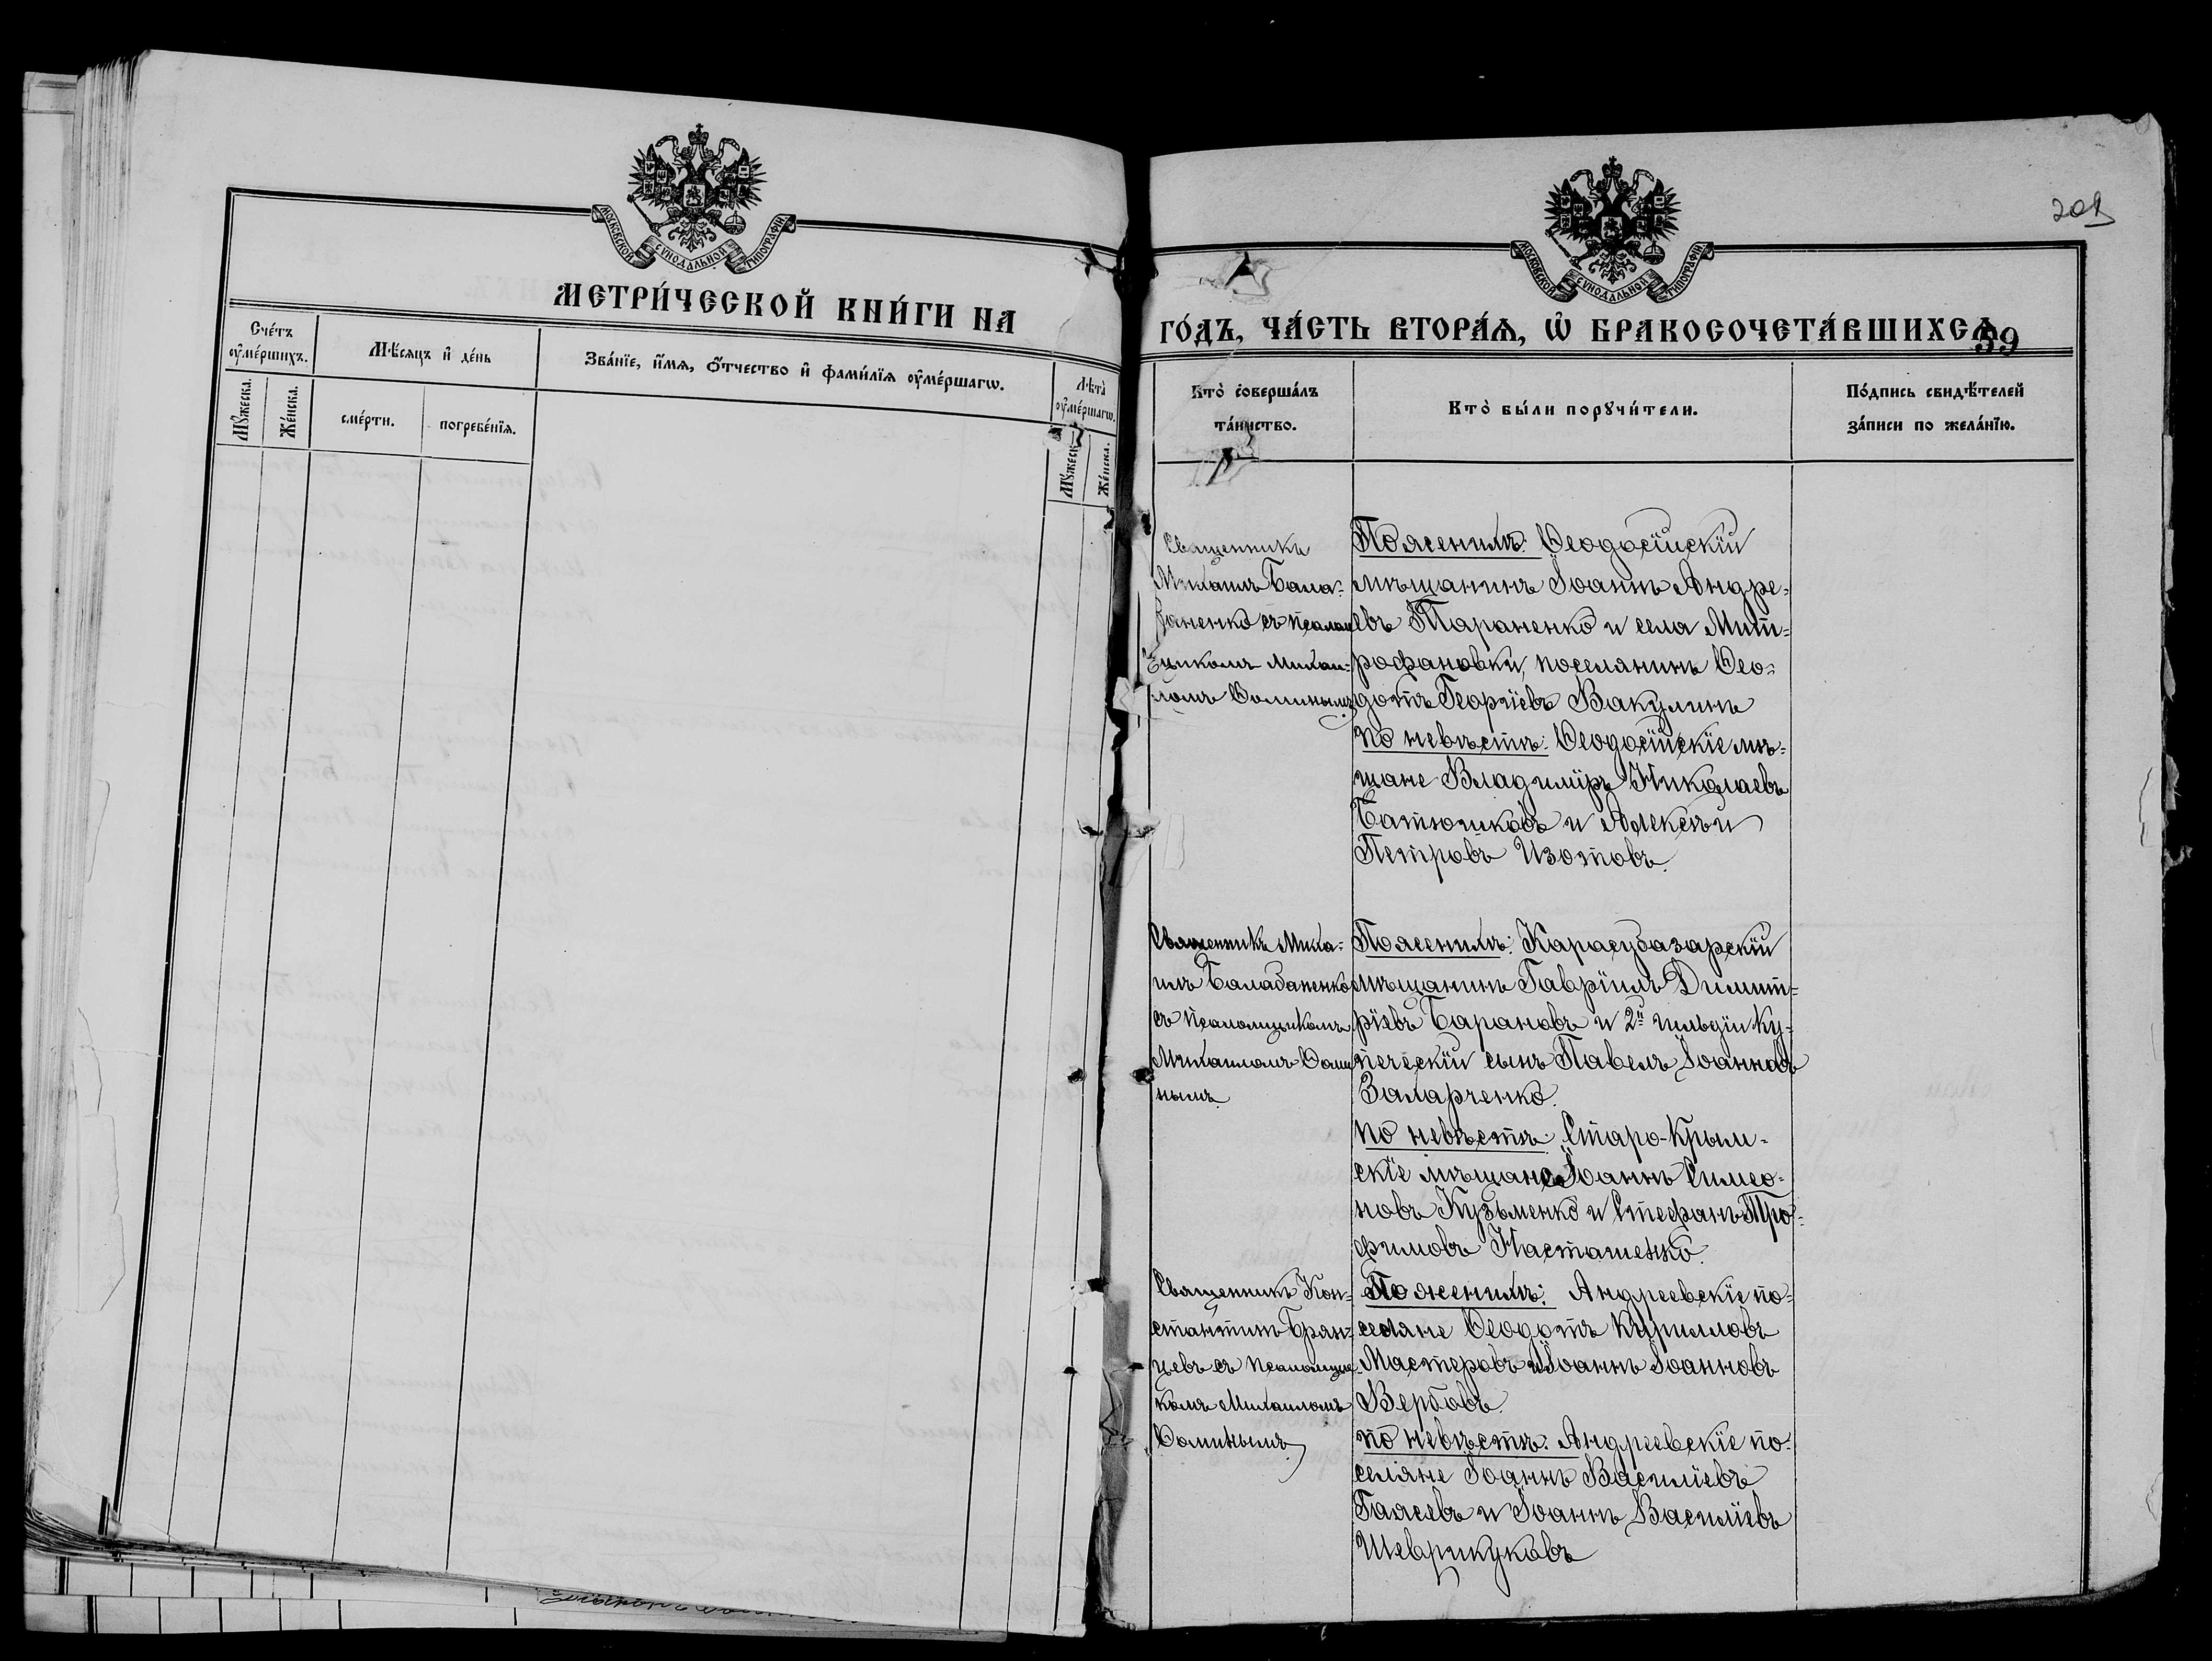 МОСКОВСКОЙ СѴНОДАЛЬНОЙ ТИПОГРАФІИ
МЕТРИ́ЧЕСКОЙ КНИ́ГИ НА
Сче́тъ ᲂу҆ме́ршихъ.
Мѣ́сяцъ и҆ де́нь
Зва́нїе, и҆́мя, ѻ҆́тчество и҆ фами́лїя ᲂу҆ме́ршагѡ.
Лѣ́та ᲂу҆ме́ршагѡ.
Мꙋ́жеска.
Же́нска.
сме́рти.
погребе́нїя.
Мꙋ́жеск
Же́нска.
201
МОСКОВСКОЙ СѴНОДАЛЬНОЙ ТИПОГРАФІИ
ГО́ДЪ, ЧА́СТЬ ВТОРА́Ѧ, Ѡ҆ БРАКОСОЧЕТА́ВШИХСѦ
59
Кто̀ соверша́лъ
та́инство.
Кто̀ бы́ли порꙋчи́тели.
По́дпись свидѣ́телей
за́писи по жела́нїю.
Священникъ
Михаилъ Бала-
баненко съ псалом
щикомъ Михаи-
ломъ Ѳоминымъ
По женихѣ: Ѳеодосійскій
мѣщанинъ Іоаннъ Андре-
евъ Тараненко и села Мит-
рофановки, поселянинъ Ѳео-
дотъ Георгіевъ Вакулинъ
по невѣстѣ: Ѳеодосійскіе мѣ-
щане Владиміръ Николаевъ
Батюшковъ и Алексѣй
Петровъ Изотовъ.
Священникъ Миха-
илъ Балабаненко
съ псаломщикомъ
Михаиломъ Ѳоми
нымъ.
По женихѣ: Карасубазарскій
мѣщанинъ Гавріилъ Димит-
ріевъ Барановъ и 2й гильдіи ку-
печескій сынъ Павелъ Іоанновъ
Захарченко.
по невѣстѣ: Старо-Крым-
скіе мѣщане Іоаннъ Симео-
новъ Кузьменко и Стефанъ Тро-
фимовъ Насташенко.
Священникъ Кон-
стантинъ Брян-
цевъ съ псаломщи
комъ Михаиломъ
Ѳоминымъ
По женихѣ: Андреевскіе по-
селяне Ѳеодотъ Кирилловъ
Мастеровъ и Іоаннъ Іоанновъ
Вербовъ.
по невѣстѣ: Андреевскіе по-
селяне Іоаннъ Василіевъ
Гаяевъ и Іоаннъ Василіевъ
Шеврикуковъ